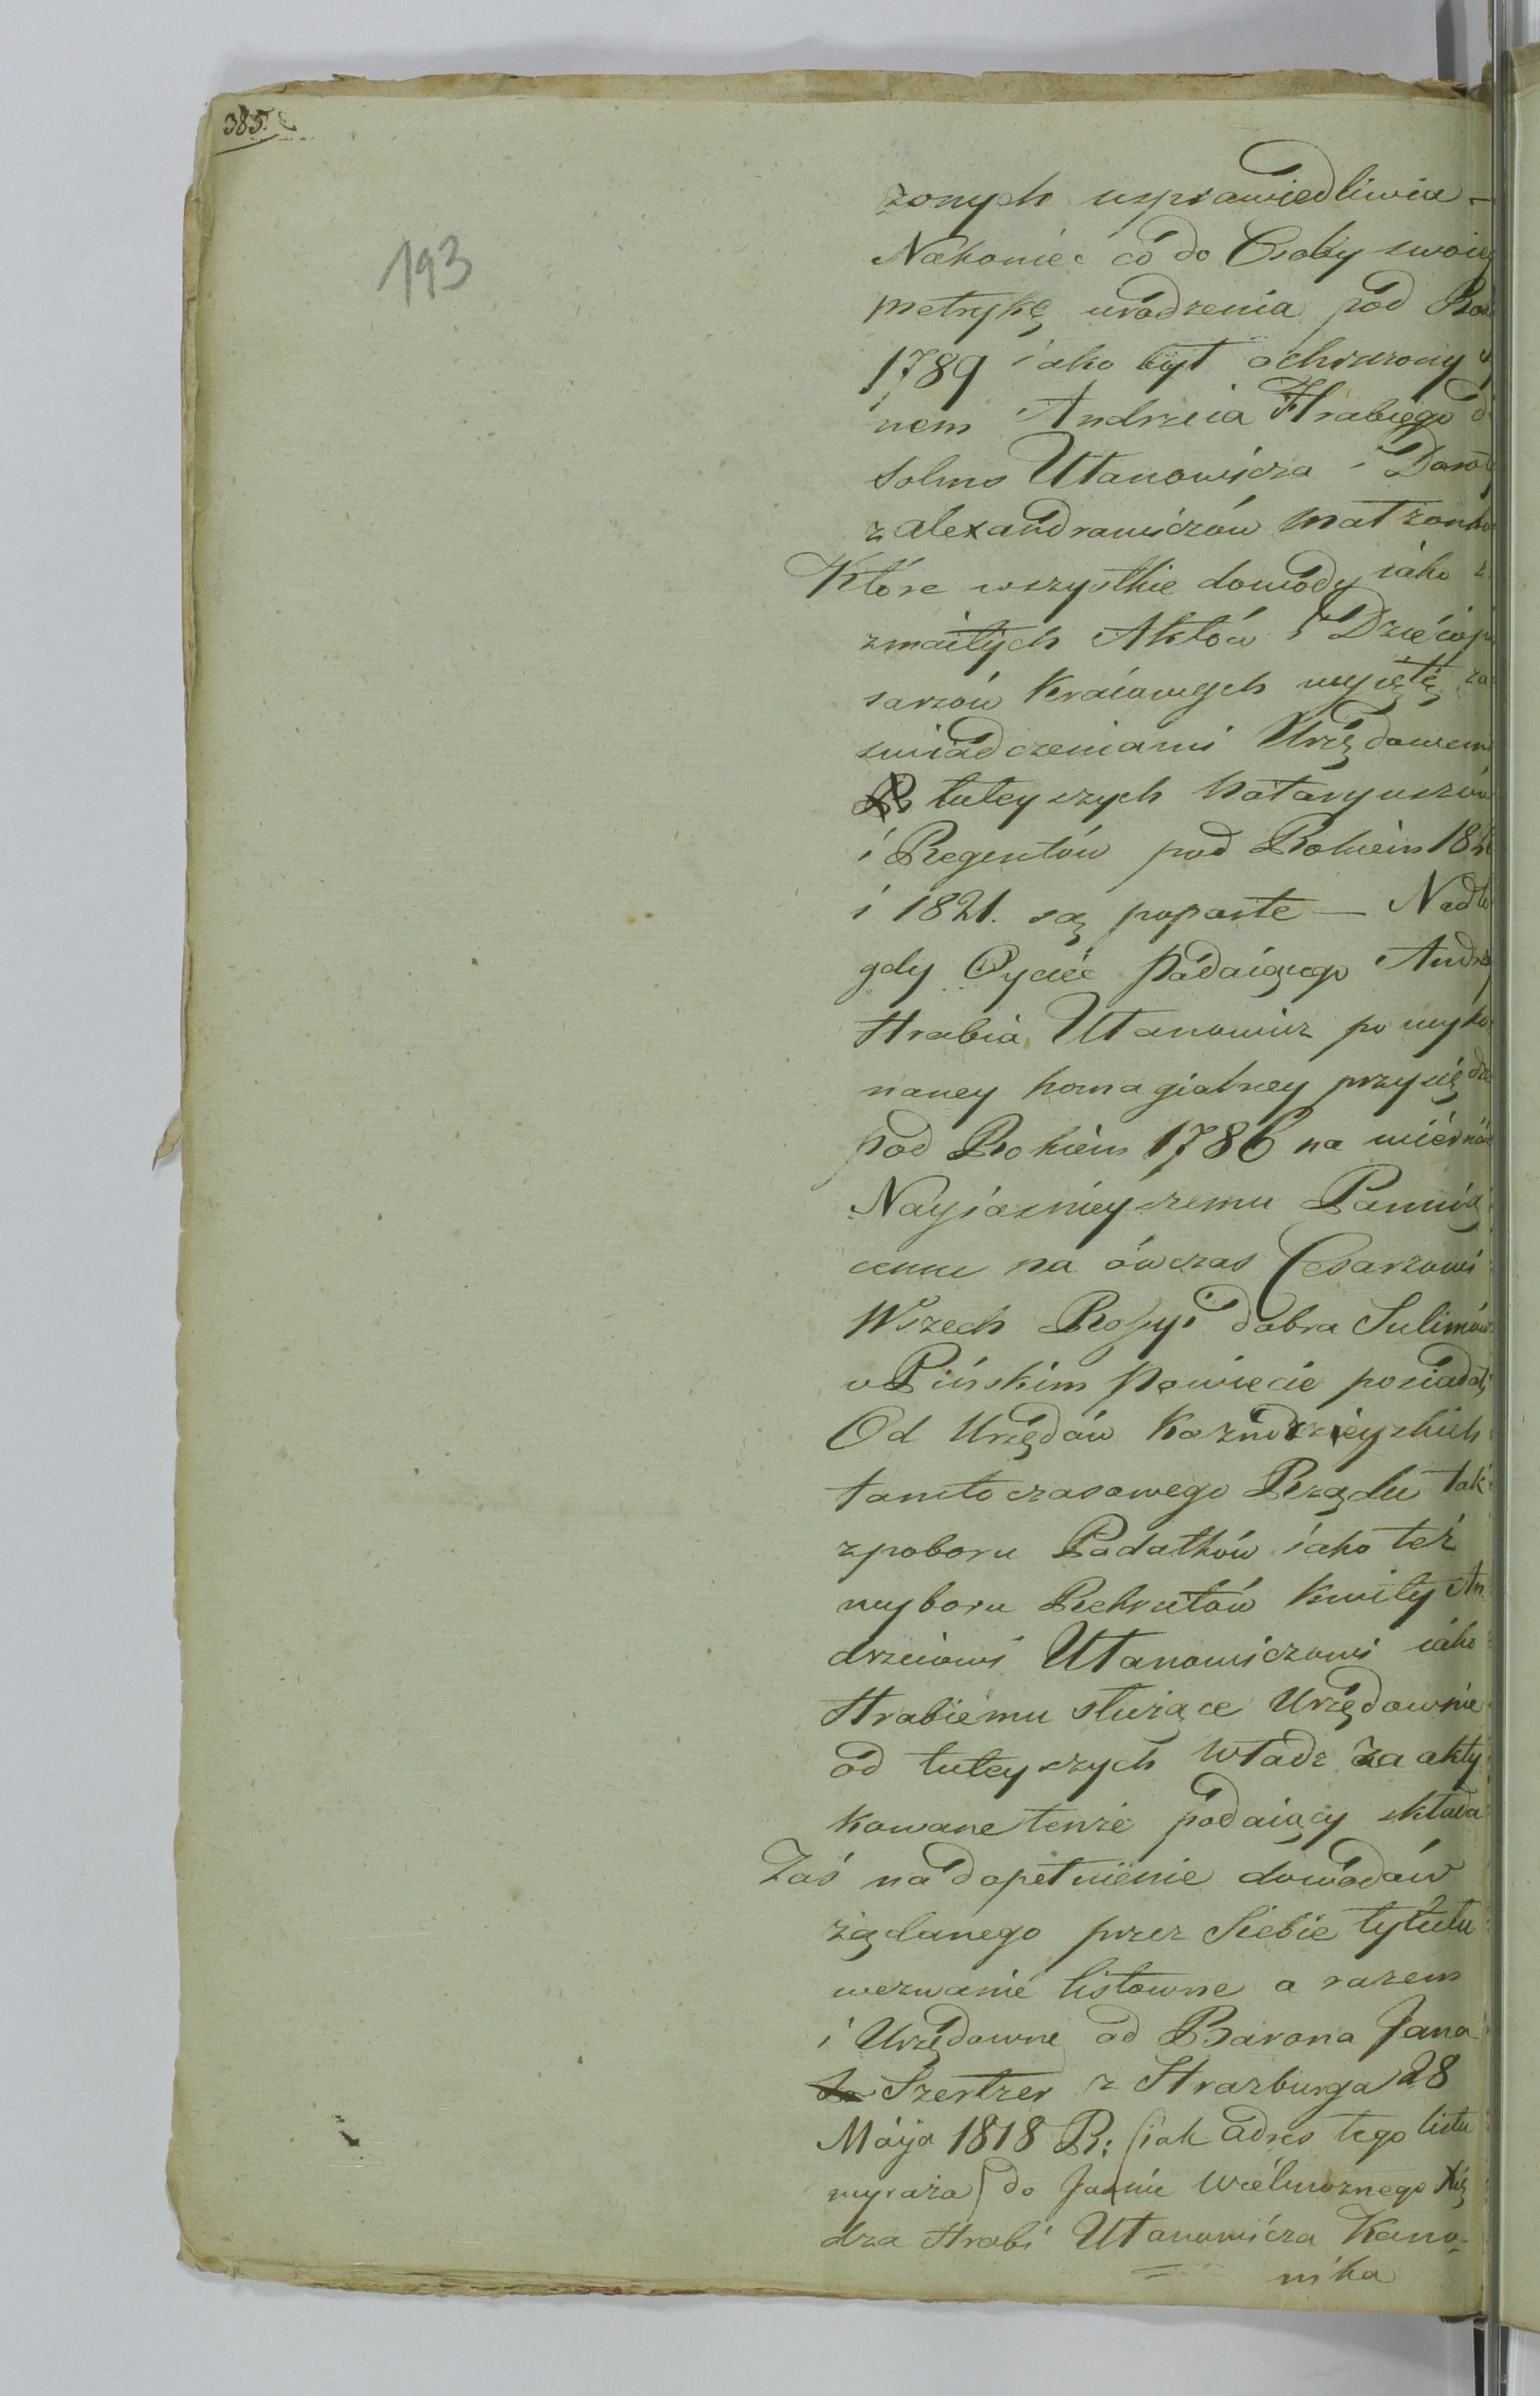 385.
193
zonych usprawiedliwia –
Nakoniec co do Osoby swoiey
metrykę urodzenia pod Rok
1789 iako był ochrzczony sy
nem Andrzeia Hrabiego d
Solms Ułanowicza i Dorot
z Alexandrowiczów małżonków
Które wszystkie dowody iako z
zmaitych Aktów i Dzieiopi
sarzów kraiowych wyięte za
swiadczeniami Urzędowem
tuteyszych Notaryuszów
i Regentów pod Rokiem 18
i 1821. są poparte — Nadto
gdy Oyciec Podaiącego Andrzey
Hrabia Ułanowicz po wyko
naney homagialney przysiędze
pod Rokiem 1786 na wierność
Nayiasnieyszemu Panuią
cemu na ówczas Cesarzowi
Wszech Rossyi dobra Sulimów
w Pińskim Powiecie posiadał
Od Urzędów Kaznodzieyskich
tamtoczasowego Rządu tak
z poboru Podatków iako też
wyboru Rekrutów kwity An
drzeiowi Ułanowiczowi iako
Hrabiemu służące Urzędownie
od tuteyszych Władz zaakty
kowane tenże podaiący składa
Zaś na dopełnienie dowodów
żądanego przez Siebie tytułu
wezwanie listowne a razem
i Urzędowne od Barona Jana
Szertzer z Strazburga 28
Maja 1818 R: (iak adres tego listu
wyraża) do Jaśnie Wielmożnego Xię
dza Hrabi Ułanowicza Kano-
nika